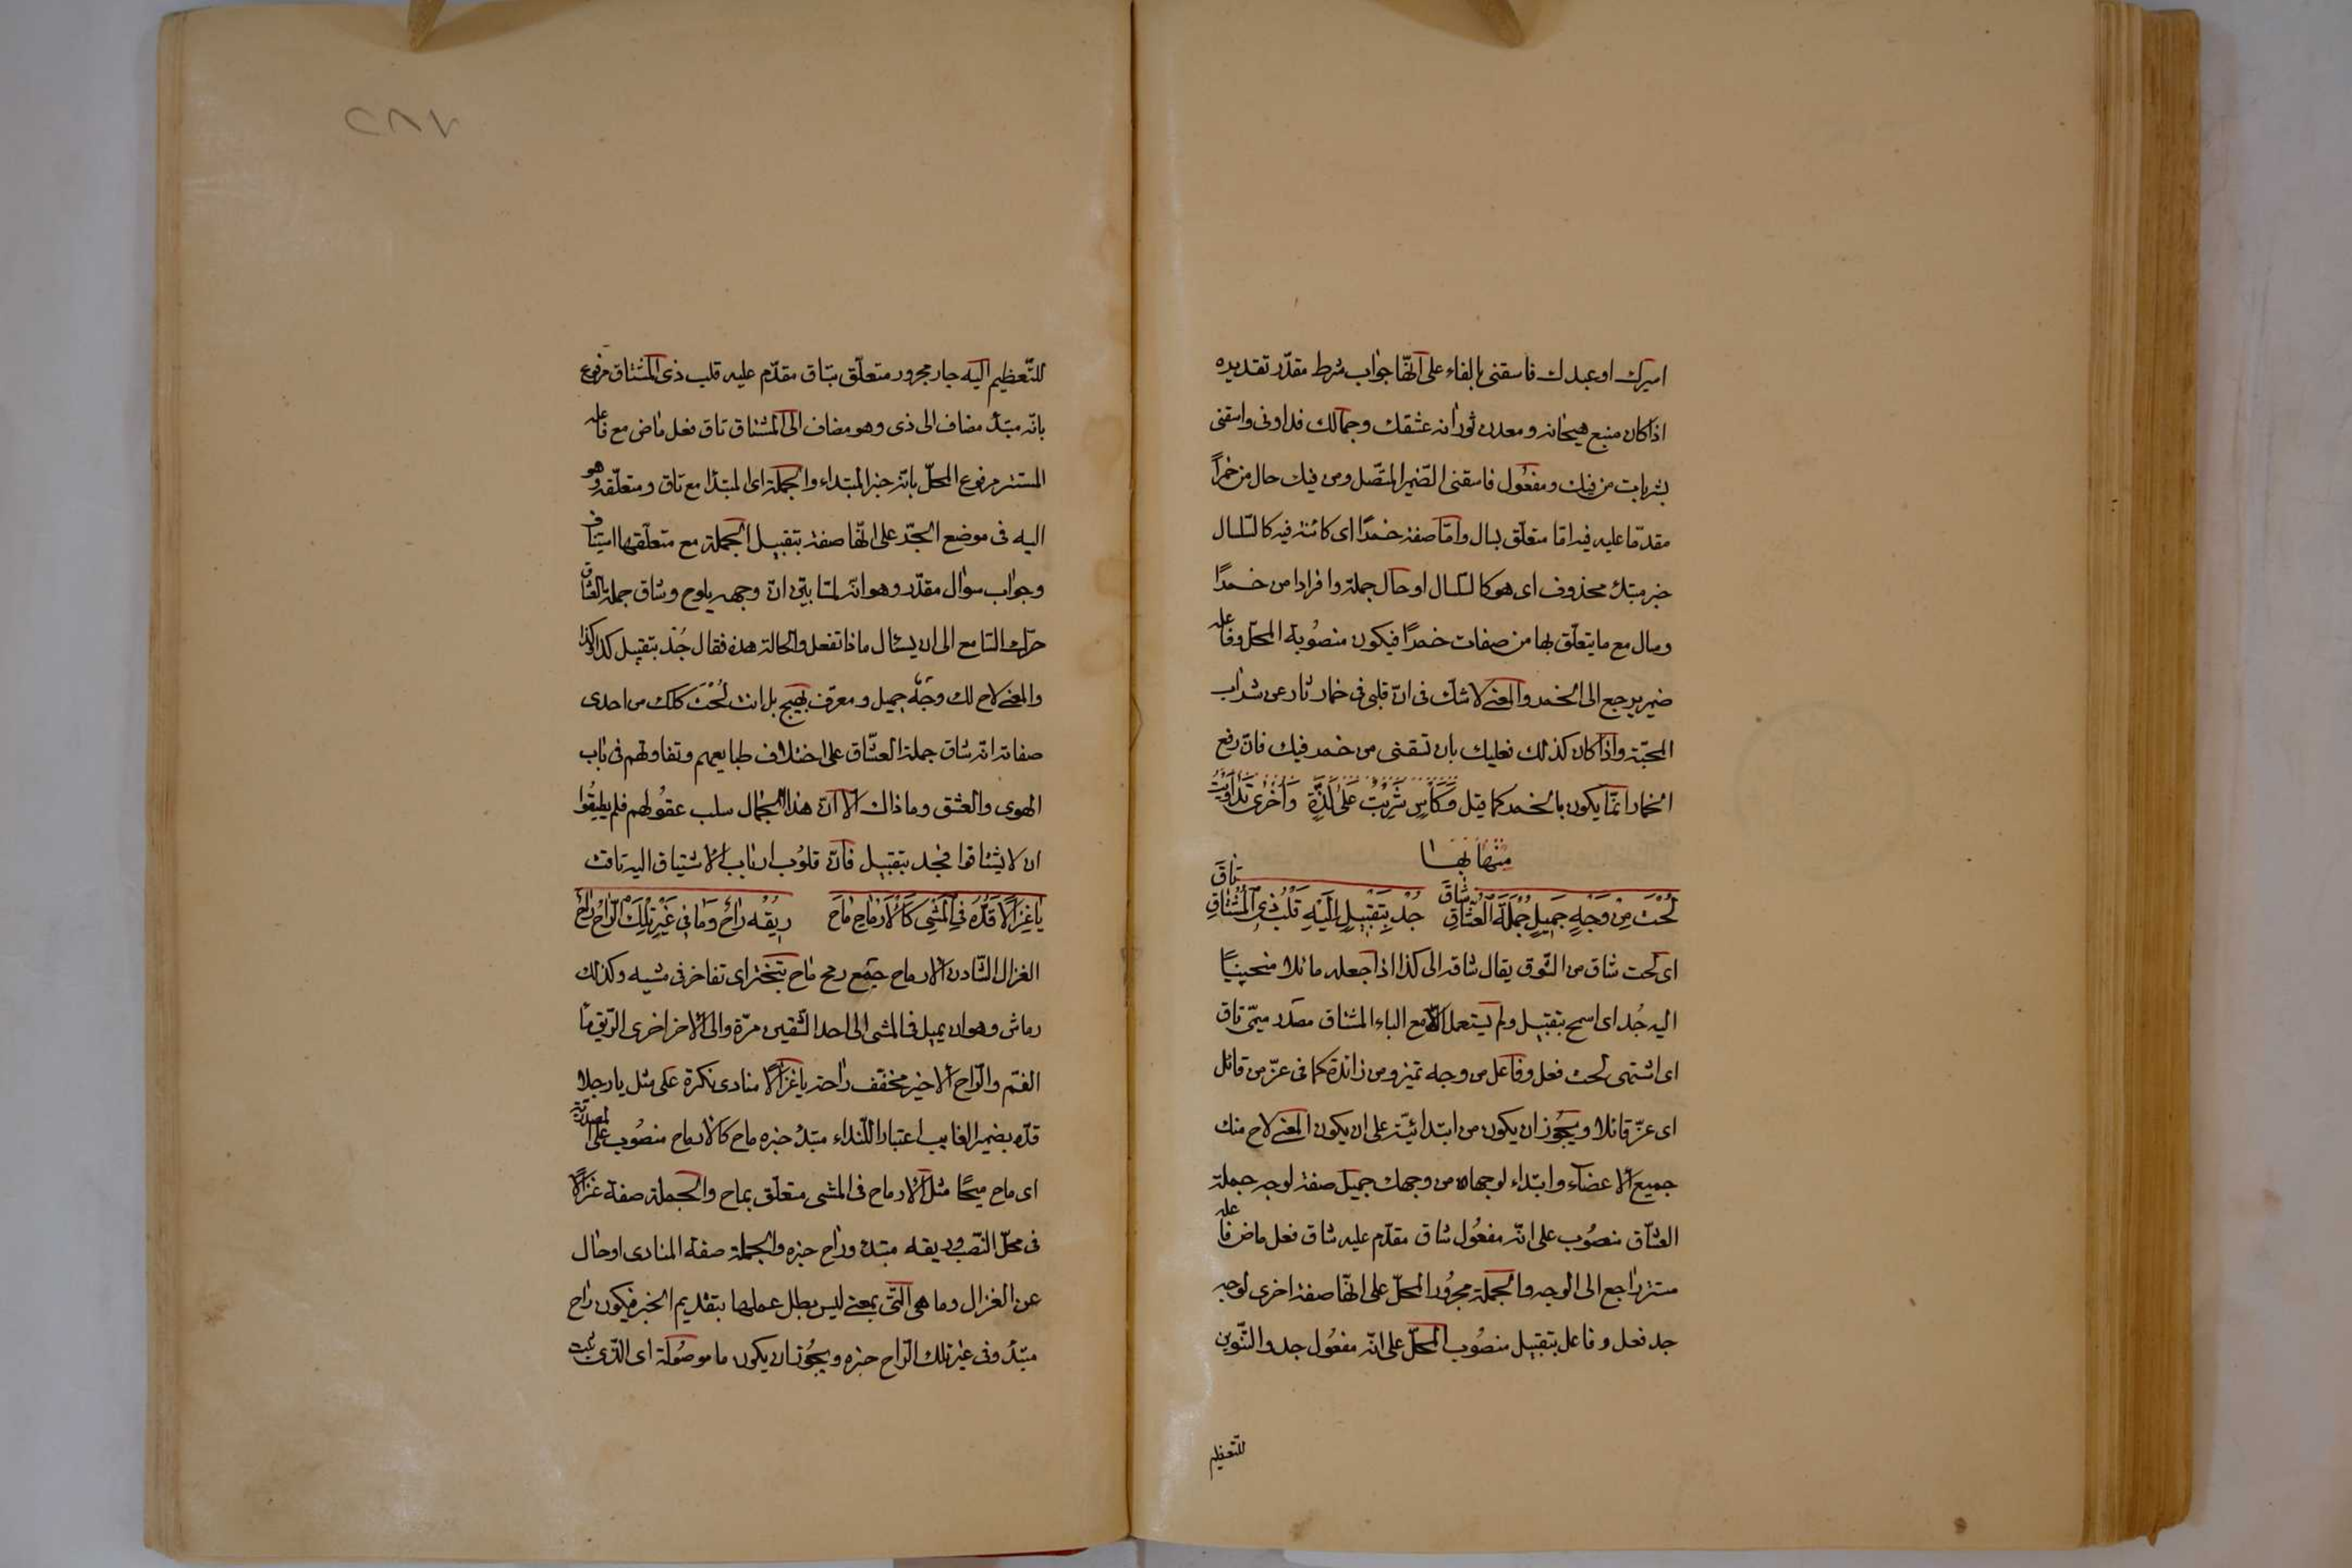 اسيرك او عبدك فاسقنى بالفاء على انّها جواب شرط مقدّر تقديره
اذا كان منبع هيجانه ومعدن ثورانه عشقك وجمالك فداونى واسقنى
بشربات من فيك ومفعُول فاسقنى الضّمير المتّصل ومن فيك حال من خمراً
مقدّما عليه فيه امّا متعلّق بسال وامّا صفة خمرًا اى كائنة فيه كالسّلسال
خبر مبتدأ محذوف اى هو كالسّلسال او حال جملة وافرادا من خمرًا
وسال مع ما يتعلّق بها من صفات خمرًا فيكون منصُوبة المحلّ وفاعله
ضمير يرجع الى الخمر والمعنى لا شكّ فى انّ قلبى فى خمار ثار عن شراب
المحبّة واذا كان كذلك فعليك بان تسقنى من خمر فيك فانّ رفع
الخمار انّما يكون بالخمر كما قيل وَكَأسٍ شَرِبْتُ عَلىٰ لَذَّةٍ وَاُخْرىٰ تَدَاوَيْتُ
مِنْهَا بِهَا
لُحْتَ مِنْ وَجْهٍ جَمِيلٍ جُمْلَةَ الْعُشّاقِ شاقَ جُدْ بِتَقْبِيلٍ اِلَيْهِ قَلْبُ ذِى الْمُشْتاقِ تاقَ
اى لُحت شاق من الشّوق يقال شاقه الى كذا اذا جعله مائلا منحنيًا
اليه جُد اى اسمح بتقبيل ولم يستعمل الّا مع الباء المشتاق مصدر ميمّى تاق
اى اشتهى لُحت فعل وفاعل من وجه تميز ومن زائدة كما فى عزّ من قائل
اى عزّ قائلا ويجُوز ان يكون من ابتدائيّة على ان يكون المعنى لاح منك
جميع الاعضاء وابتداء لوجهاه من وجهك جميل صفة لوجه جملة
العشّاق منصُوب على انّه مفعُول شاق مقدّم عليه شاق فعل ماض فاعله
مستتر راجع الى الوجه والجملة مجرُور المحلّ على انّها صفة اخرى لوجه
جد فعل وفاعل بتقبيل منصُوب المحلّ على انّه مفعُول جد والتّنوين
للتّعظيم
٢٨٧
للتّعظيم اليه جار مجرور متعلّق بتاق مقدّم عليه قلب ذى المشتاق مرفوع
بانّه مبتدأ مضاف الى ذى وهو مضاف الى المشتاق تاق فعل ماض مع فاعله
المستتر مرفوع المحلّ بانّه خبر المبتداء والجملة اى المبتدا مع تاق ومتعلّقه وهو
اليه فى موضع الجرّ على انّها صفة بتقبيل الجملة مع متعلّقها استيناف
وجواب سوال مقدّر وهو انّه لمّا بيّن انّ وجهه يلوح وشاق جملة العشّاق
حرّك السّامع الى ان يسئال ماذا تفعل والحالة هذه فقال جُدْ بتقبيل كذا كذا
والمعنى لاح لك وجهٌ جميل ومعرّف بهيج بل انت لُحْتَ كلك من احدى
صفاته انّه شاق جملة العشّاق على اختلاف طبايعهم وتفاوتهم فى باب
الهوى والعشق وما ذاك الّا انّ هذا الجمال سلب عقُولهم فلم يطيقُوا
ان لا يشتاقوا فجُد بتقبيل فانّ قلوُب ارباب الاشتياق اليه تاقت
يا غِزَالًا قَدُّهُ فِى الْمَشْىِ كَالْاَرْمَاحِ مَاحَ رِيقُه رَاحٌ وَمَا فِى غَيْرِ تِلْكَ الرّاحِ رَاحٌ
الغزال الشّادن الارماح جَمع رمح ماح تبختر اى تفاخر فى مشيه وكذلك
رماش وهو ان يميل فى المشى الى احد الشّقين مرّة والى الآخر اخرى الرّيق ماء
الفم والرّاح الاخير مخفّف راحة يا غزالًا منادى نكرة على مثل يا رجلا
قدّه بضمير الغايب اعتبارا للنداء مبتدأ خبره ماح كالارماح منصُوب على المصدريّة
اى ماح ميحًا مثل الارماح فى المشى متعلّق بماح والجملة صفة غزالًا
فى محلّ النّصب وريقه مبتدأ وراح خبره والجملة صفة المنادى او حال
عن الغزال وما هى الّتى بمعنى ليس بطل عملها بتقديم الخبر فيكون راح
مبتدأ وفى غير تلك الرّاح خبره ويجُوز ان يكون ما موصُولة اى الّذى ثبت